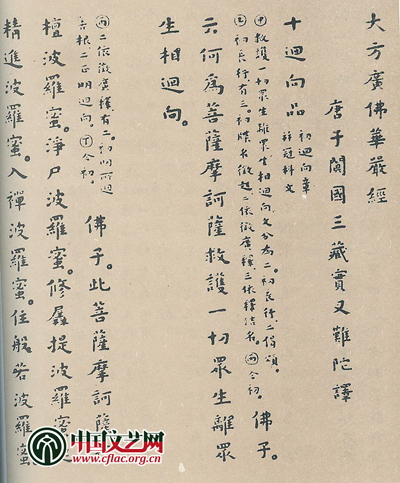 大方廣佛華嚴經
唐于闐國三藏實叉難陀譯
十迴向品 初迴向章
冠科文
救護一切眾生離眾生相迴向。文分為二。初長行二偈頌。
初長行有三。初牒名徵起二依徵廣釋三依釋結名。今初。 佛子。
云何為菩薩摩訶薩救護一切眾生離眾
生相迴向。
二依徵廣釋有二。初明所迴
善根二正明迴向。今初。
佛子。此菩薩摩訶薩
檀波羅蜜。淨尸波羅蜜。修羼提波羅蜜。
精進波羅蜜。入禪波羅蜜。住般若波羅蜜
中国文艺网
www.cflac.org.cn